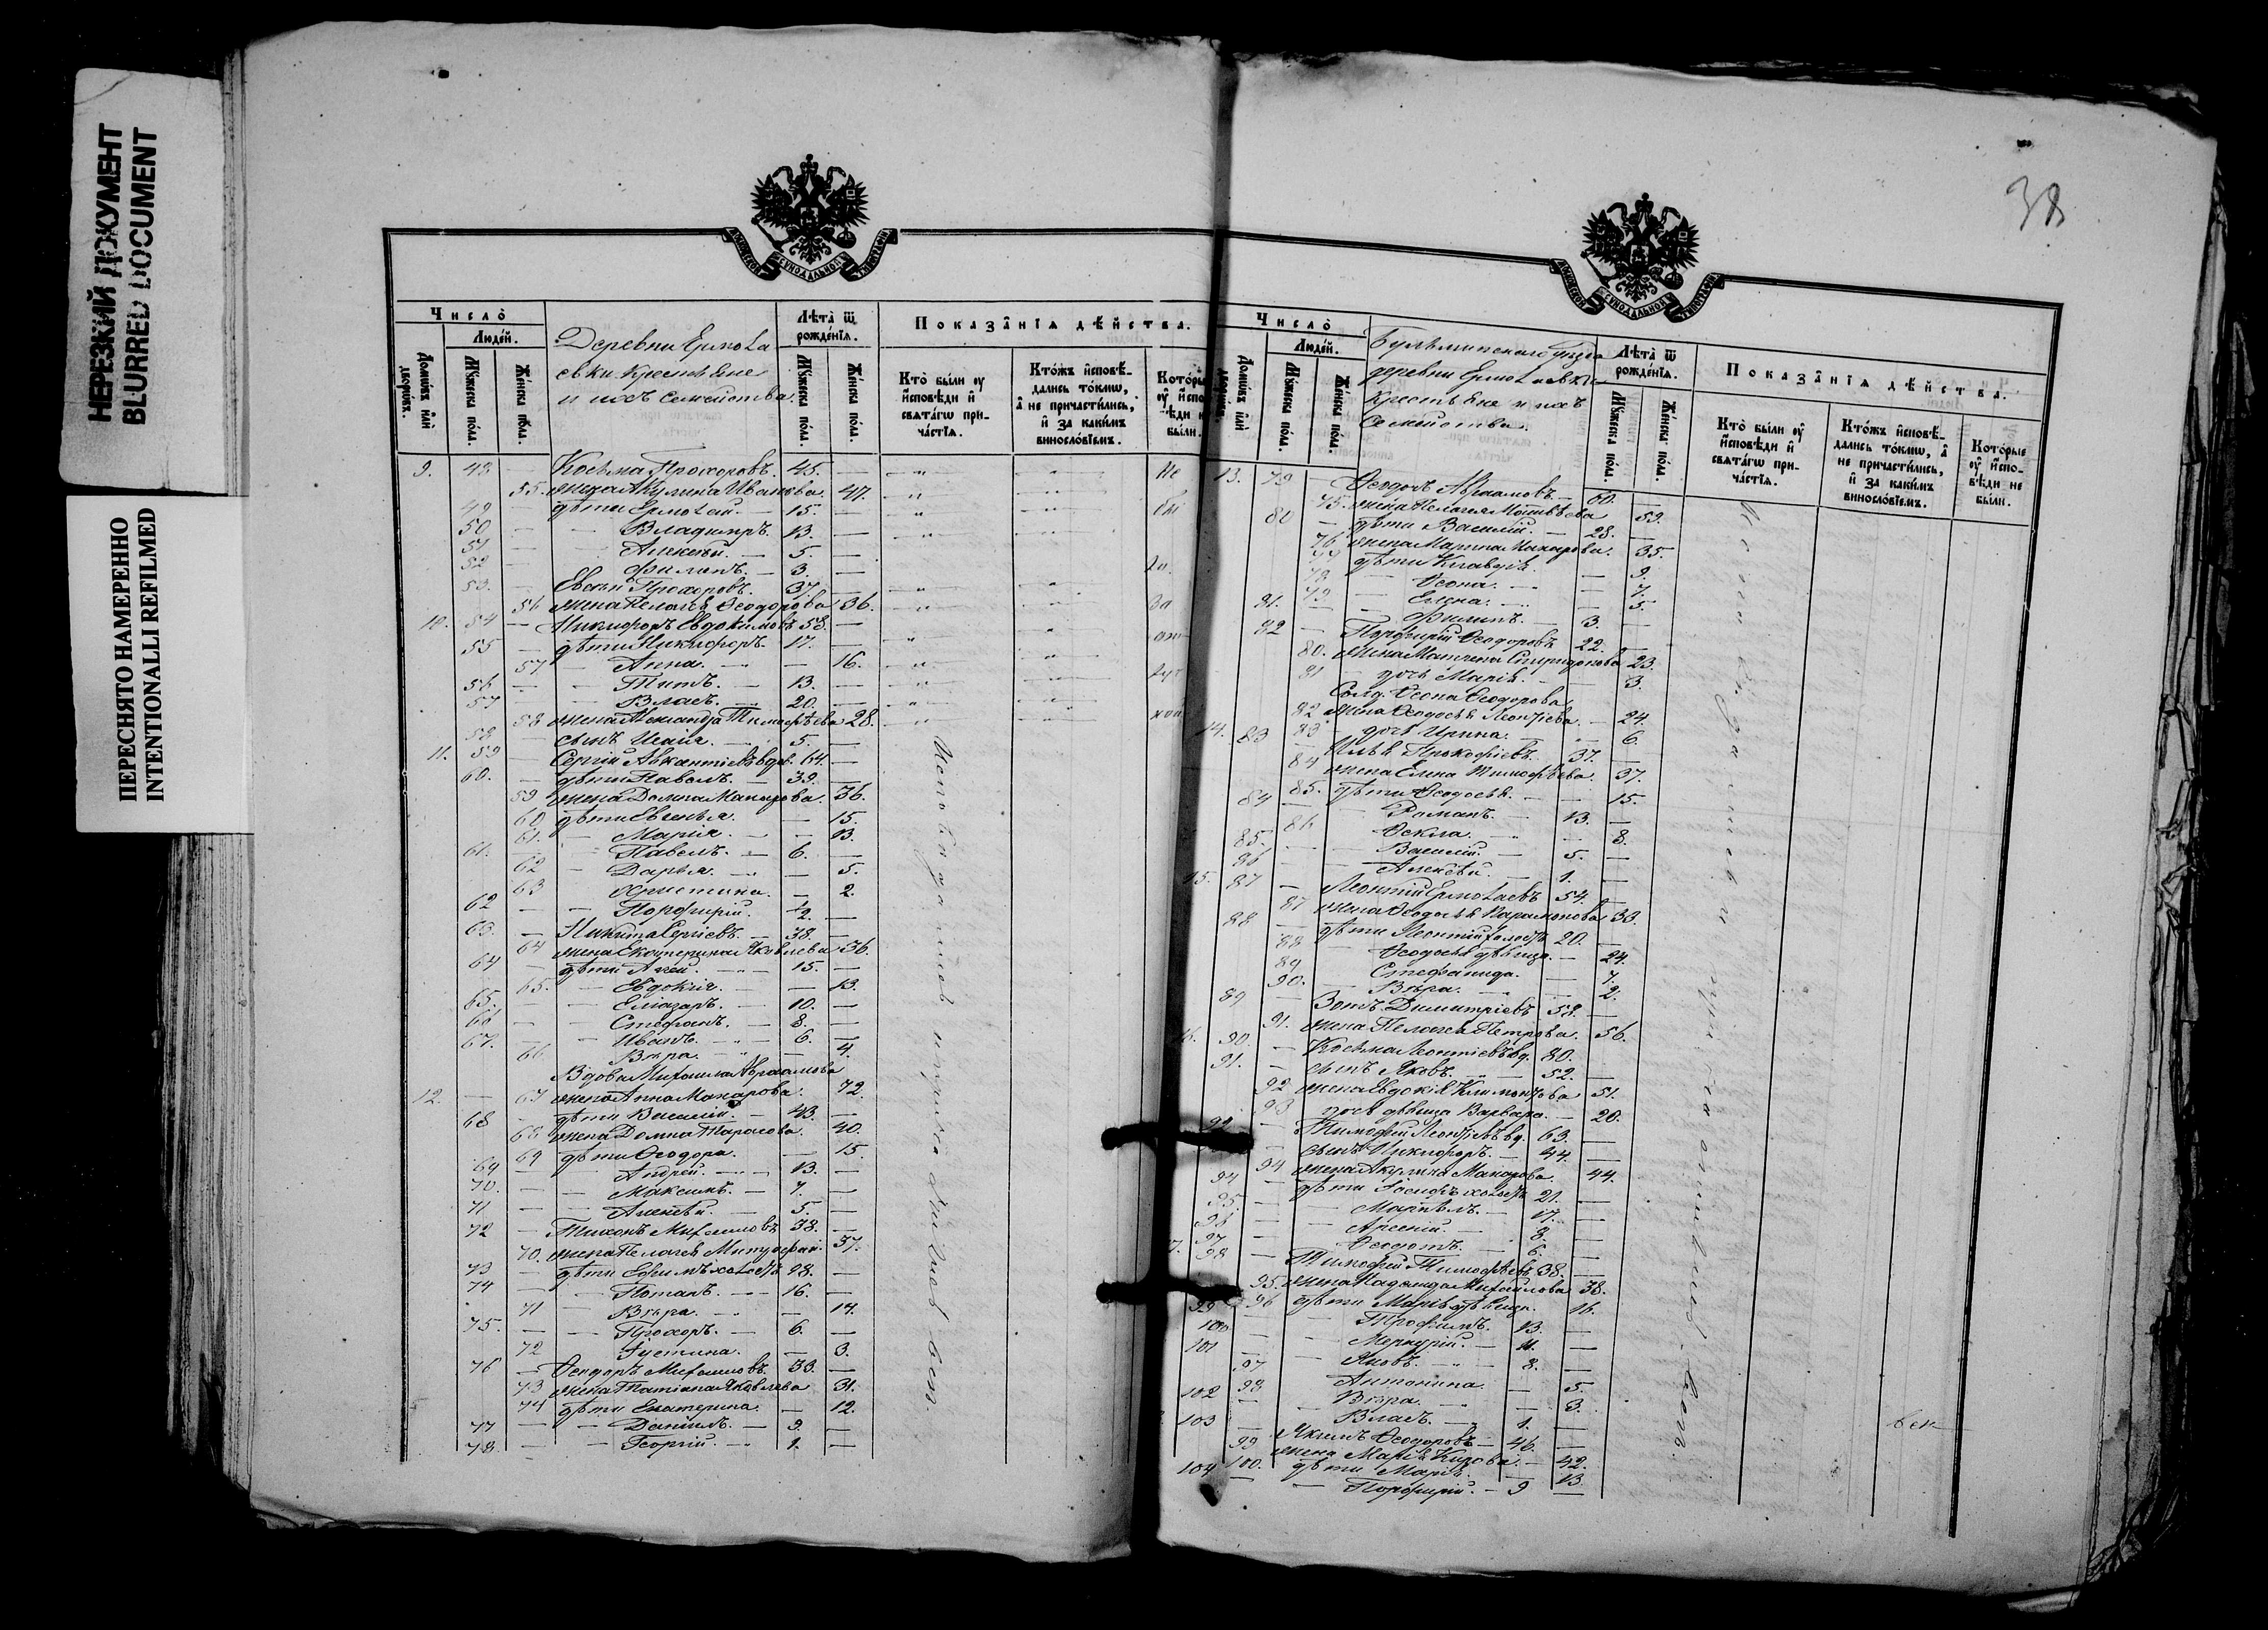 НЕРЕЗКИЙ ДОКУМЕНТ
BLURRED DOCUMENT
ПЕРЕСНЯТО НАМЕРЕННО
INTENTIONALLI REFILMED
38
Число̀
Людей.
Домѡвъ или̂ дворѡвъ.
Мꙋжеска пола.
Женска пола.
Деревни Ермола
евки крестьяне
и ихъ семейства.
Лѣта̀ ѿ рожде́нїѧ.
Мꙋжеска пола.
Женска пола.
Показа̂нїѧ дѣ́йства.
Кто̀ бы́ли ᲂу҆ и҆́сповѣди и҆ свѧта́гѡ при-ча́стїѧ.
Кто́жъ и҆сповѣ́-дались то́кмѡ, а҆ не причасти́лись, и҆ за каки́мъ винословїемъ.
Кото́рые
9. 48 — Косьма Прохоровъ. 45. — Не
55. жена Акулина Иванова. 47.
49 — дѣти Ермолай. — 15. — бы
50 — Владимръ. 13. —
51 — Алексѣй. — 5. —
52 — Филипъ. — 3. — ли
53. — Евсѣй Прохоровъ. 37. —
56 жена Пелагея Ѳеодорова 36. За
10. 54 — Никифоръ Евдокимовъ 58. —
55 — дѣти Никифоръ. 17. — от
57 — Анна. — 16.
56 — Титъ. — 13. — луч
57 — Власъ. — 20. —
58 жена Александра Тимофѣева 28. кой
58 — сынъ Исаія. — 5. —
11. 59 — Сергій Авксентіевъ вдв. 64. —
60. — дѣти Павелъ. — 39. —
59 жена Домна Макарова. 36.
60 дѣти Евгенья. — 15.
61. — Марія. — 13.
61. — Павелъ. — 6. —
62 — Дарья. — 5.
63 Христина. — 2.
62 — Порфирій. ½. —
63. — Никита Сергіевъ. — 38. —
64 жена Екатерина Яковлева 36.
64 — дѣти Агей. — 15. —
65. — Евдокія. — 13.
65. — Еліазаръ. — 10. —
66 — Стефанъ. — 8. —
67. — Иванъ. — 6. —
66 Вѣра. — 4.
Вдова Михаила Авраамова
12. — 67 жена Анна Макарова. 72.
68 — дѣти Василій. — 43. —
68 жена Домна Тарасова. 40.
69 дѣти Ѳеодора. — 15.
69 — Андрей. — 13. —
70. — Максимъ. — 7. —
71 — Алексѣй. — 5. —
72 — Тихонъ Михаиловъ 38. —
70. жена Пелагея Митрофан. 37.
73 — дѣти Ефимъ холостъ 18. —
74 — Потапъ. — 16. —
71 — Вѣра. — 14.
75. — Прохоръ. — 6. —
72 Іустина. — 3.
76 — Ѳеодоръ Михаиловъ. 33. —
73 жена Татіана Яковлева 31.
74 дѣти Екатерина. — 12.
77 — Даніилъ. — 3. —
78. — Георгій. — 1. —
Число̀
Людей.
Мꙋжеска пола.
Женска пола.
Бугульминскаго уѣзда
деревни Ермолаевки
крестьяне и ихъ
семейства.
Лѣта̀ ѿ рожде́нїѧ.
Мꙋжеска пола.
Женска пола.
Показа̂нїѧ дѣ́йства.
Кто̀ бы́ли ᲂу҆ и҆́сповѣди и҆ свѧта́гѡ при-ча́стїѧ.
Кто́жъ и҆сповѣ́-дались то́кмѡ, а҆ не причасти́лись, и҆ за каки́мъ винословїемъ.
Кото́рые ᲂу҆ и҆спо-вѣди не бы́ли.
13. 79 — Ѳеодоръ Авраамовъ. — 60. —
75. жена Пелагея Матвѣева 59.
80 — дѣти Василій. — 28. —
76 жена Марина Макарова. 35.
77 дѣти Клавдія. — 9.
78 Ѳеона. — 7.
79 — Елена. — 5.
81. — Филипъ. — 3. —
82 — Порфирій Ѳеодоровъ 22. —
80. жена Матрена Спиридонова 23.
81 дочь Марія. — 3.
Солд. Ѳеона Ѳеодорова
82 жена Ѳеодосья Леонтіева. — 24.
83 дочь Ирина. — 6.
14. 83 — Илья Прокофіевъ. 37. —
84 жена Елена Тимофѣева. 37.
85. дѣти Ѳеодосья. — 15.
84 — Романъ. — 13. —
86 Ѳекла. — 8.
85. — Василій. — 5. —
86 — Алексѣй. — 1. —
15. 87 — Леонтій Ермолаевъ 54. —
87 жена Ѳеодосья Парамонова 33.
88 — дѣти Леонтій холостъ 20. —
88 Ѳеодосья дѣвица. — 24.
89 Стефанида. — 7.
90. Вѣра. — 2.
89 — Зотъ Димитріевъ 58. —
91. жена Пелагея Петрова. 56.
16. 90. — Косьма Леонтіевъ вд. 80. —
91. — сынъ Яковъ. — 52. —
92 жена Евдокія Климонтова 51.
93 дочь дѣвица Варвара. — 20.
92 — Тимофей Леонтіевъ вд. 63. —
— сынъ Никифоръ. — 44. —
94 жена Акулина Макарова. 44.
94 — дѣти Іосифъ холостъ 21. —
95. — Маркелъ. — 17. —
96 — Арсеній. 8. —
97 — Ѳеодотъ. — 6. —
17. 98 — Тимофей Тимофѣевъ 38. —
95. жена Надежда Михайлова 38.
96 дѣти Марія дѣвица. 16.
99 — Трофимъ. — 13. —
100 — Меркурій. — 11. —
101 — Яковъ. — 8. —
97 Антонина. — 5.
98 — Вѣра. — 3.
102 — Власъ. — 1. —
103 — Якимъ Ѳеодоровъ — 46. —
99 жена Марія Кирова. — 42.
100. дѣти Марія. — 13.
104 — Порфирій. — 9 —